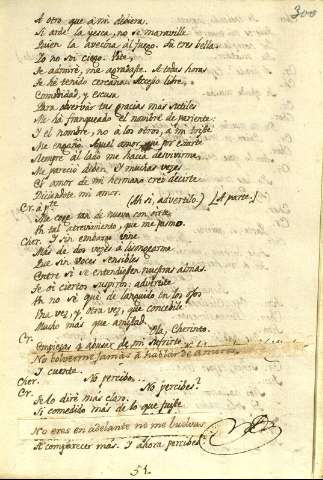 300
A otro que á mi debiera.
Si arde la yesca, no se maraville
Quien la avecina al fuego. Tu eres bella.
Yo no soi ciego. Vite,
Te admiré, me agradaste. A todas horas
Te hé tenido cercana. Acceso libre,
Comodidad, y escusa
Para observar tus gracias mas sutiles
Me há franqueado el nombre de pariente:
Y el nombre, no á los otros, á mi triste
Me engañó. Aquel amor que por estarte
Siempre al lado me hacia desvivirme,
Me pareció deber. Y muchas veces
El amor de mi hermana creo decirte
Diciendote mi amor.
Cr. á pte. (Ah si, advertilo.) [A parte.]
Me coge tan de nuevo con oirle
Un tal atrevimiento, que me pasmo.
Cher. Y sin embargo vine
Mas de dos veces á lisongearme
Que sin voces sensibles
Entre si se entendiesen nuestras almas.
Te oi ciertos suspiros: advertite
Un no sé que de languido en los ojos
Una vez, y otra vez, que concebile
Mucho mas que amistad.
Cr. Ola, Cherinto.
Empiezas á abusar de mi sufrirte
No bolverme jamas á hablar de amores,
Y cuenta.
Cher. No percibo.
Cr. No percibes?
Te lo diré mas claro.
Si comedido más de lo que fuiste
No eres en adelante no me buelvas
A comparecer mas. Y ahora percibes?
51.